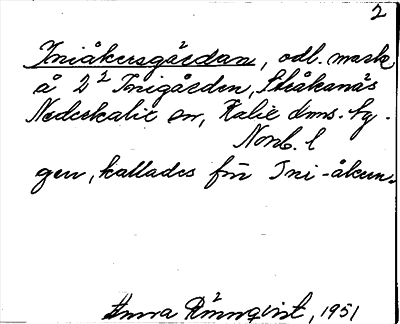 2
Iniåkersgärdan, odl. mark
å 2² Inigården, Stråkanäs
Nederkalix sn, Kalix dms. hg.
Norrb. l
gen, kallades för Ini-åkern.
Anna Rönnqvist, 1951